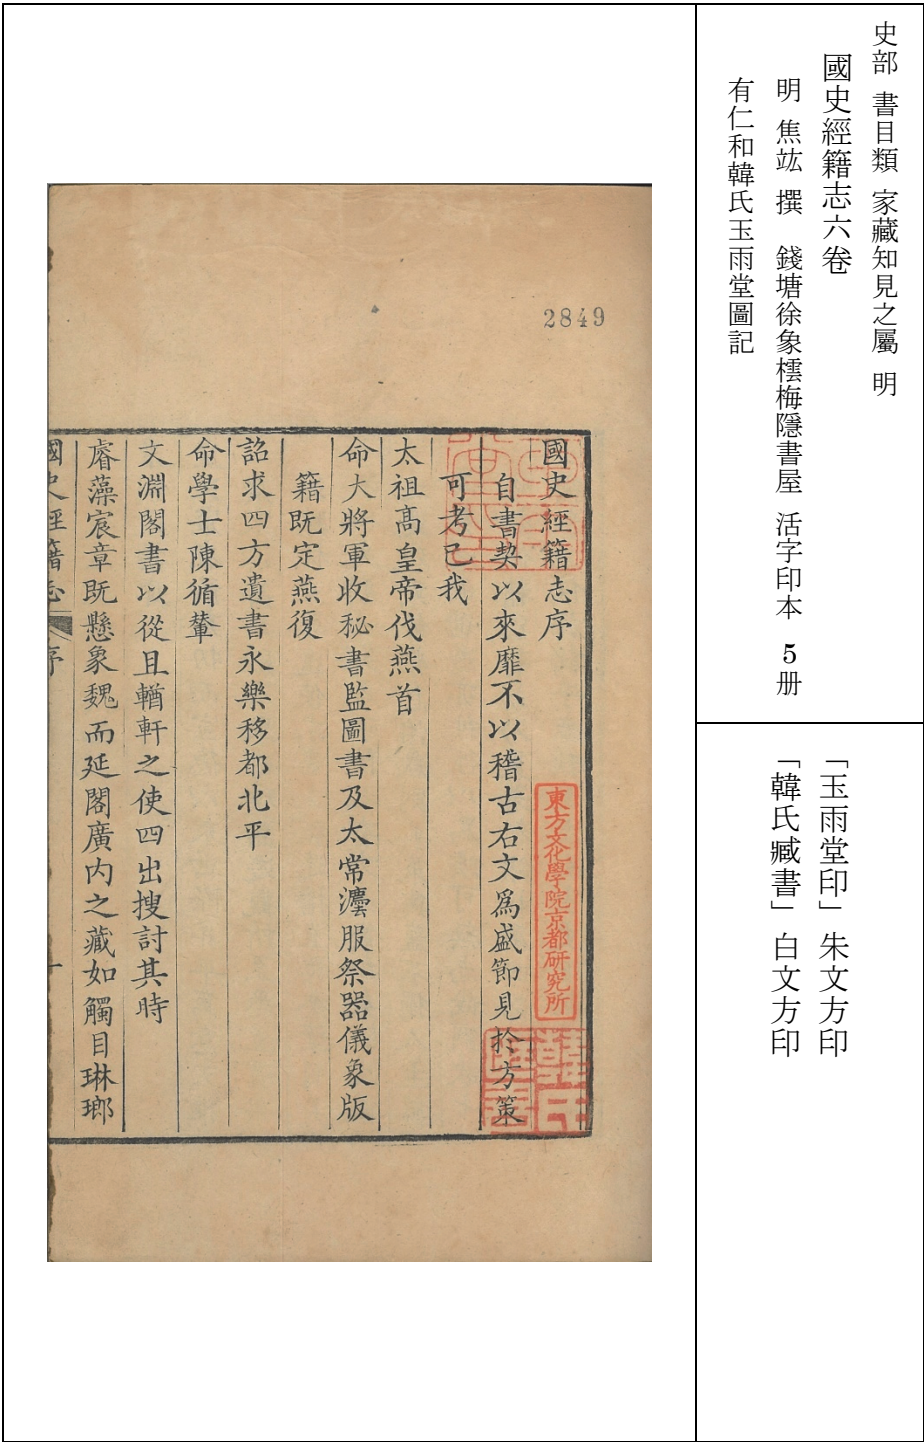 史部 書目類 家藏知見之屬 明
國史經籍志六卷
明 焦竑 撰 錢塘徐象橒梅隱書屋 活字印本 5册
有仁和韓氏玉雨堂圖記
「玉雨堂印」朱文方印
「韓氏臧書」白文方印
2849
國史經籍志序
自書契以來靡不以稽古右文爲盛節見於方策
可考已我
太祖高皇帝伐燕首
命大將軍收秘書監圖書及太常灋服祭器儀象版
籍既定燕復
詔求四方遺書永樂移都北平
命學士陳循輦
文淵閣書以從且輶軒之使四出搜討其時
睿藻宸章既懸象魏而延閣廣内之藏如觸目琳瑯
國史經籍志 序 一
東方文化學院京都研究所
玉雨堂印
韓氏臧書